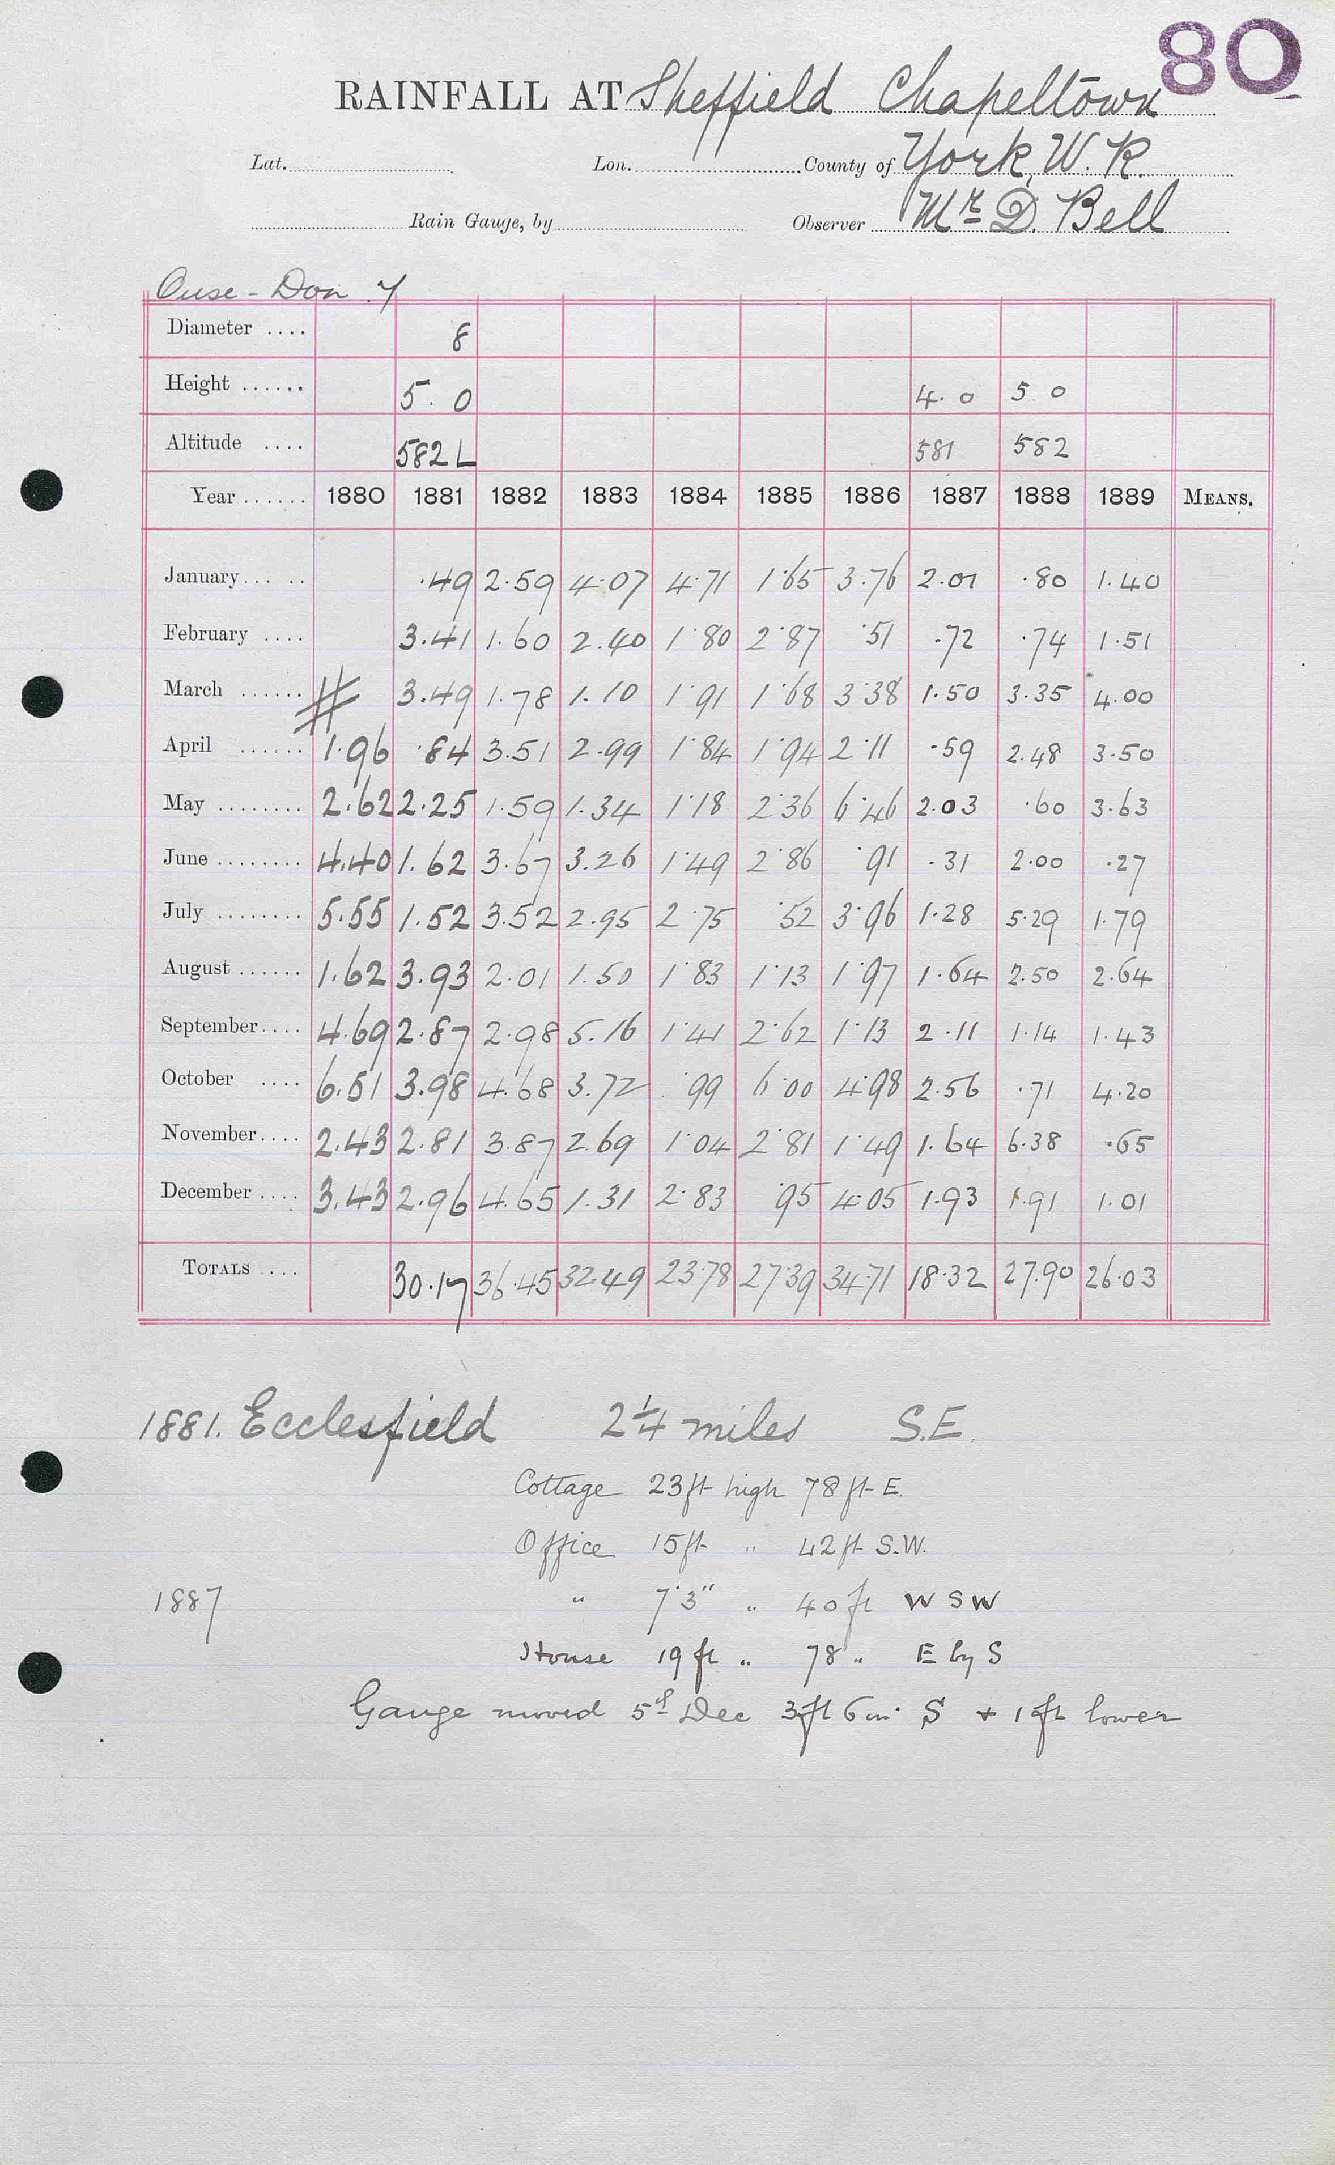 80
RAINFALL AT Sheffield Chapeltown
Lat. Lon. County of York, W. R.
Rain Gauge, by Observer Mr. D. Bell
Ouse - Don
Diameter .... 8
Height ...... 5. 0 4. 0 5 0
Altitude .... 582 L 581 582
Year ...... 1880 1881 1882 1883 1884 1885 1886 1887 1888 1889 MEANS.
January... .. .49 2.59 4.07 4.71 1.65 3.76 2.01 .80 1.40
February .... 3.41 1.60 2.40 1.80 2.87 .51 .72 .74 1.51
March ...... # 3.49 1.78 1.10 1.91 1.68 3.38 1.50 3.35 4.00
April ...... 1.96 .84 3.51 2.99 1.84 1.94 2.11 .59 2.48 3.50
May ........ 2.62 2.25 1.59 1.34 1.18 2.36 6.46 2.03 .60 3.63
June ........ 4.40 1.62 3.67 3.26 1.49 2.86 .91 .31 2.00 .27
July ........ 5.55 1.52 3.52 2.95 2.75 .52 3.96 1.28 5.29 1.79
August ...... 1.62 3.93 2.01 1.50 1.83 1.13 1.97 1.64 2.50 2.64
September.... 4.69 2.87 2.98 5.16 1.41 2.62 1.13 2.11 1.14 1.43
October .... 6.51 3.98 4.68 3.72 .99 6.00 4.98 2.56 .71 4.20
November.... 2.43 2.81 3.87 2.69 1.04 2.81 1.49 1.64 6.38 .65
December .... 3.43 2.96 4.65 1.31 2.83 .95 4.05 1.93 1.91 1.01
TOTALS .... 30.17 36.45 32.49 23.78 27.39 34.71 18.32 27.90 26.03
1881. Ecclesfield 2 1/4 miles S.E.
Cottage 23ft high 78 ft E.
Office 15ft " 42 ft S.W.
1887 " 7'3" " 40 ft W S W
House 19 ft " 78 " E by S
Gauge moved 5th Dec 3ft 6 in. S + 1 ft lower